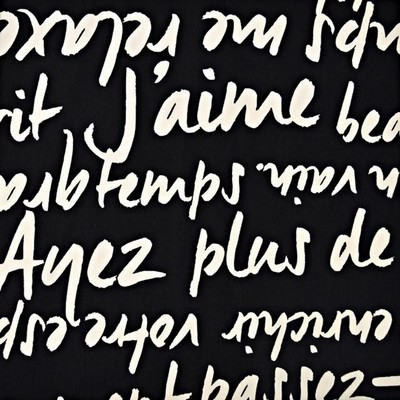 me relaxe
rit J'aime bea
temps n vain.
Ayez plus de
enrichir votre esp
passez-